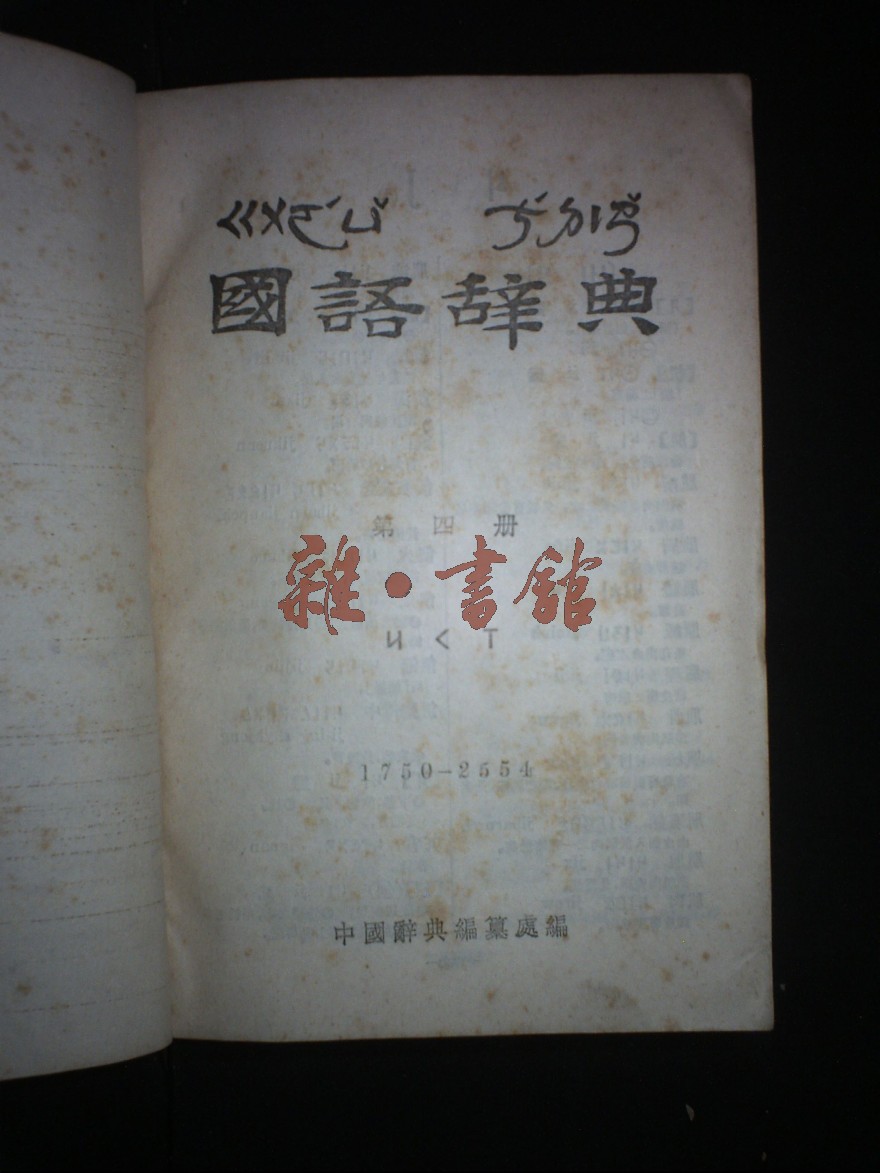 ㄍㄨㄛˊㄩˇ ㄘˊㄉㄧㄢˇ
國語辞典
第四册
雜·書館
ㄐㄑㄒ
1750-2554
中國辭典編纂處編